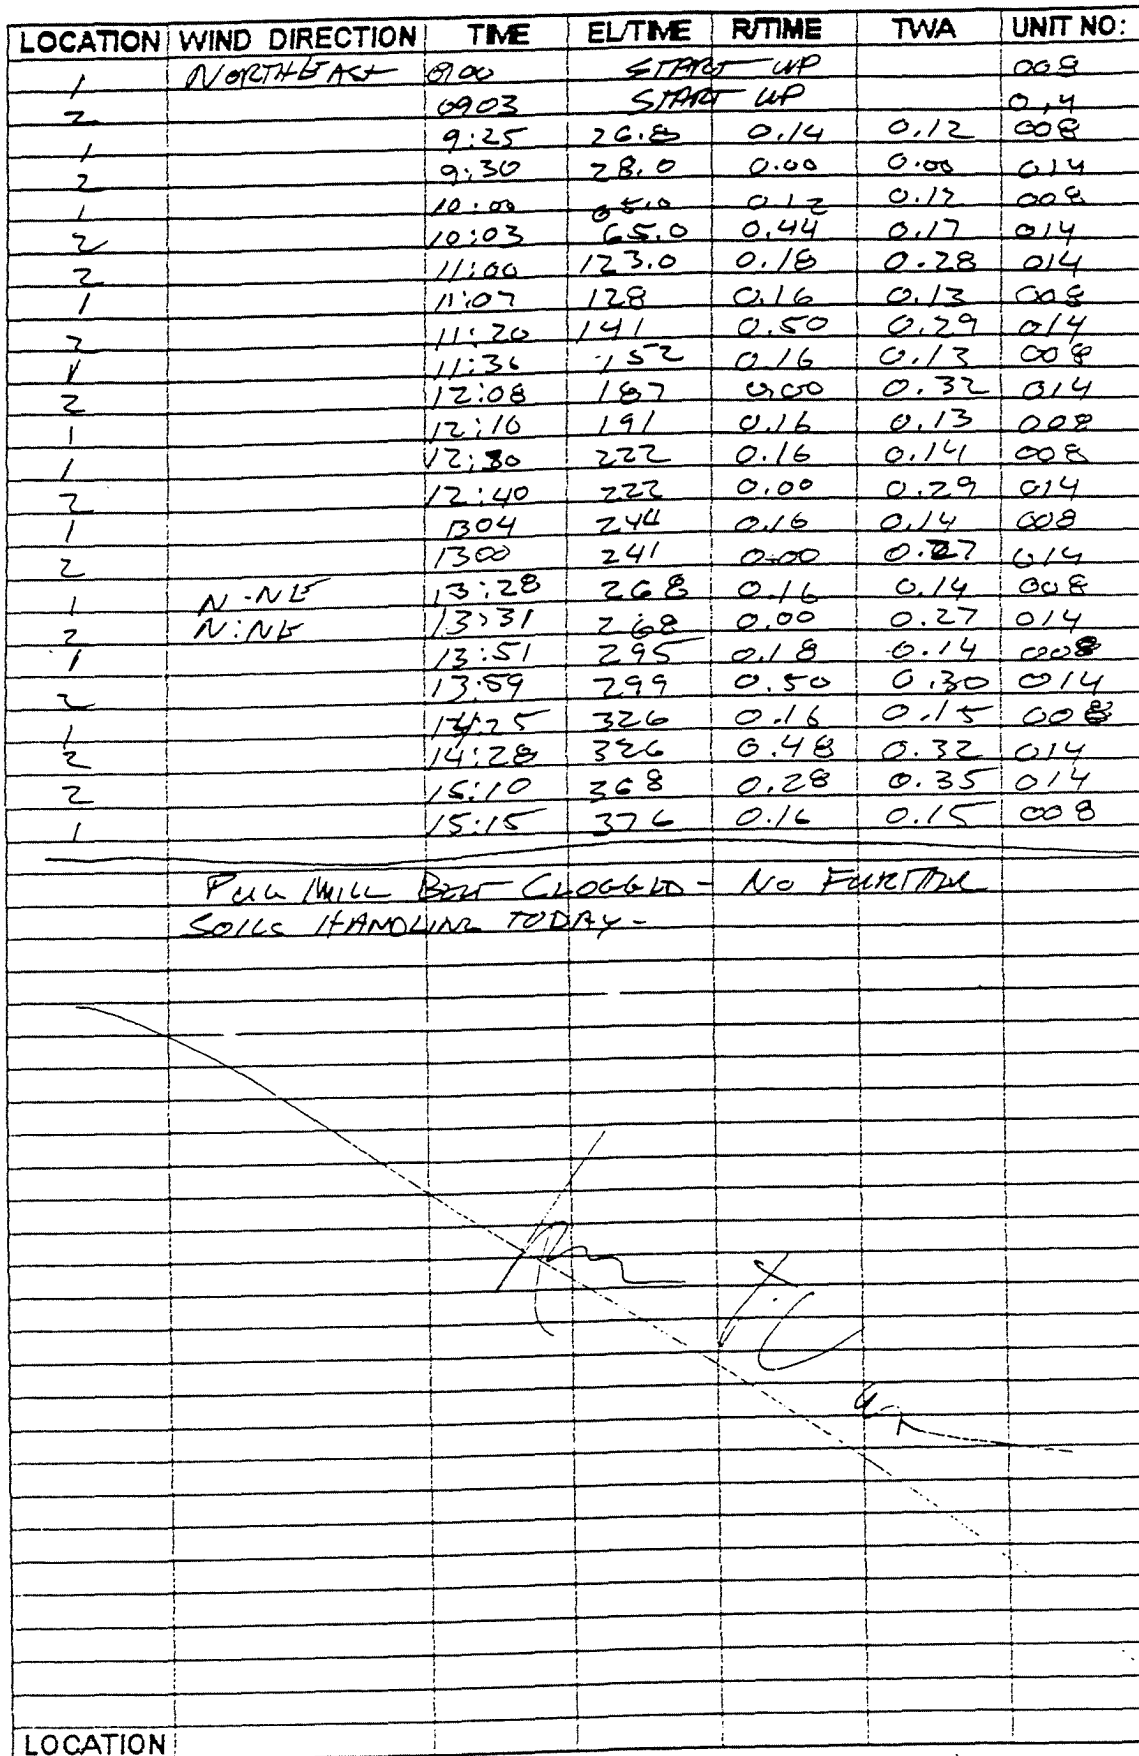 LOCATION WIND DIRECTION TIME EL/TIME R/TIME TWA UNIT NO:
1 NORTHEAST 0900 START UP 008
2 0903 START UP 014
1 9:25 26.8 0.14 0.12 008
2 9:30 28.0 0.00 0.00 014
1 10:00 0.12 0.12 008
2 10:03 65.0 0.44 0.17 014
2 11:00 123.0 0.18 0.28 014
1 11:07 128 0.16 0.13 008
2 11:20 141 0.50 0.29 014
1 11:36 152 0.16 0.13 008
2 12:08 187 0.00 0.32 014
1 12:10 191 0.16 0.13 008
1 12:30 222 0.16 0.14 008
2 12:40 222 0.00 0.29 014
1 1304 244 0.16 0.14 008
2 1300 241 0.00 0.27 014
1 N-NE 13:28 268 0.16 0.14 008
2 N:NE 13:31 268 0.00 0.27 014
1 13:51 295 0.18 0.14 008
2 13:59 299 0.50 0.30 014
1 14:25 326 0.16 0.15 008
2 14:28 326 0.48 0.32 014
2 15:10 368 0.28 0.35 014
1 15:15 376 0.16 0.15 008
PUG MILL BELT CLOGGED - NO FURTHER
SOILS HANDLING TODAY -
LOCATION